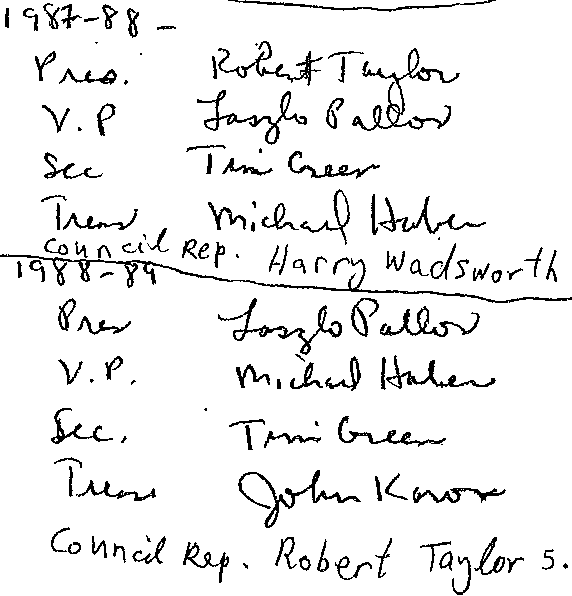 1987-88 -
Pres. Robert Taylor
V.P Laszlo Pallos
Sec Tim Green
Treas Michael Huber
Council Rep. Harry Wadsworth
1988-89
Pres Laszlo Pallos
V.P. Michael Huber
Sec. Tim Green
Treas John
Council Rep. Robert Taylor S.